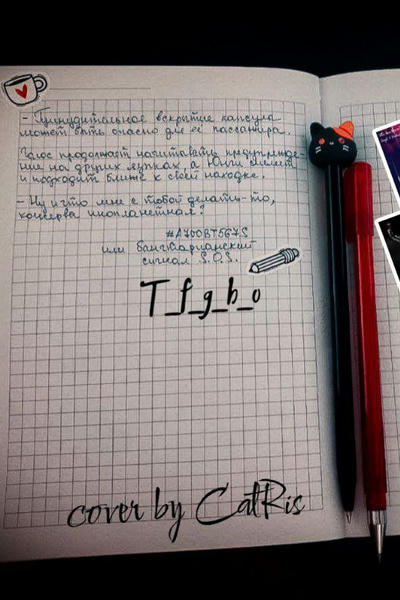 - Принудительное вскрытие капсула
может быть опасно для её пассажира.
Голос продолжает начитывать предупрежде-
ние на других языках, а Юнги
и подходит ближе к своей находке.
- Ну и что мне с тобой делать-то,
консерва инопланетная?
#A700BT567S
или бангкарианский
сигнал S.O.S.
T_f_g_b_o
cover by CatRis